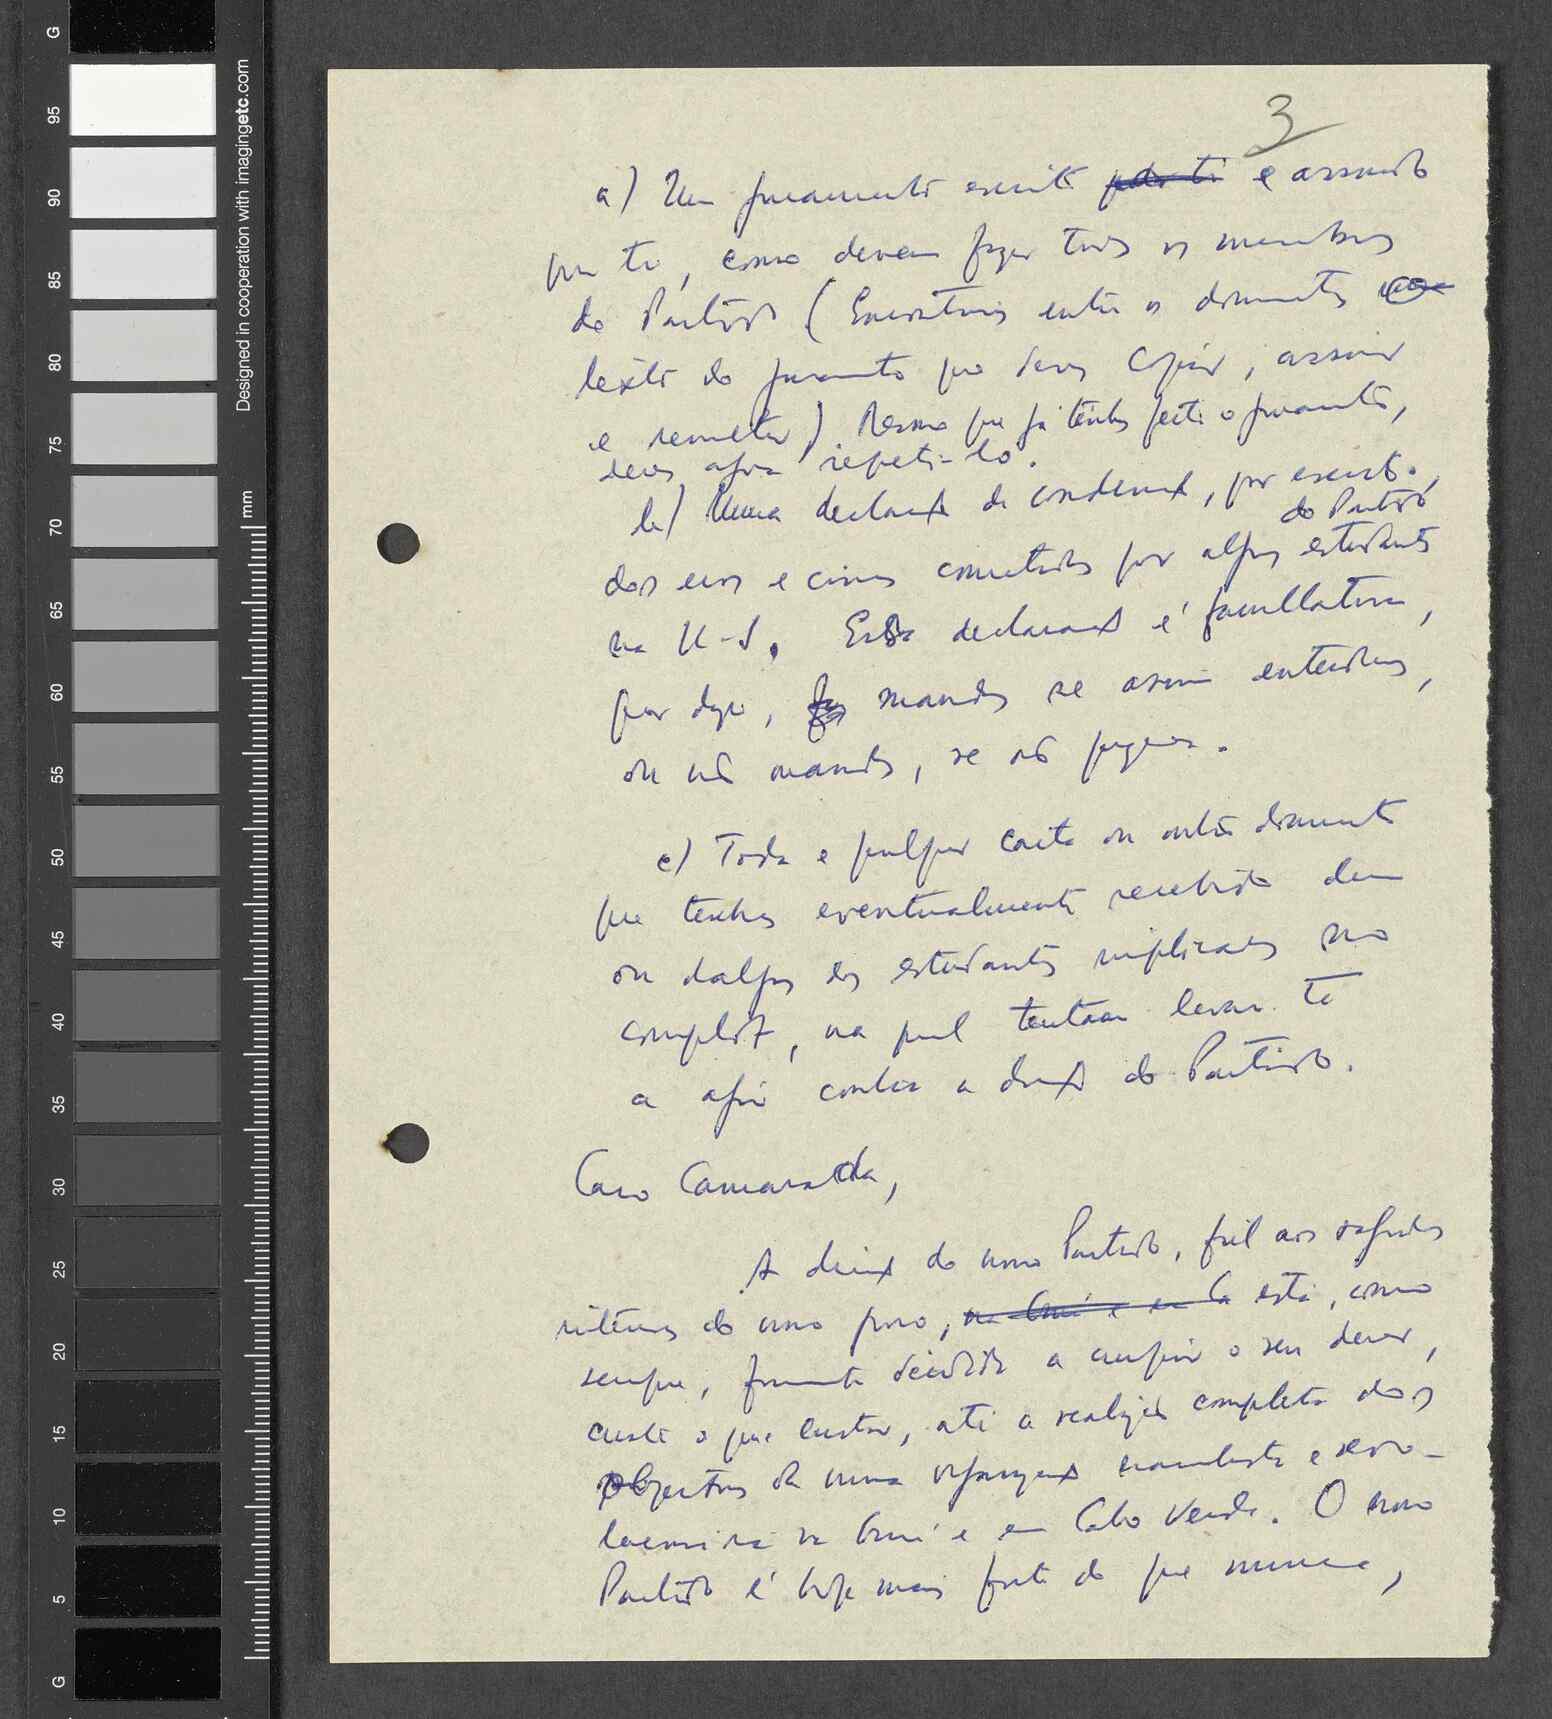 3
a) Um juramento escrito por ti e assinado
por ti, como devem fazer todos os membros
do Partido (Encontrarás entre os documentos
texto do juramento que deves copiar, assinar
e remeter). Mesmo que já tenhas feito o juramento,
deves agora repeti-lo.
b) Uma declaração de condenação, por escrito,
do Partido
dos erros e crimes cometidos por alguns estudantes
na U-S. Essa declaração é facultativa,
quer dizer, mandas se assim entenderes,
ou não mandas, se não quizeres.
c) Toda e qualquer carta ou outro documento
que tenhas eventualmente recebido dum
ou dalguns dos estudantes implicados no
complot, na qual tentam levar-te
a agir contra a direcção do Partido.
Caro Camarada,
A direcção do nosso Partido, fiel aos sagrados
interesses do nosso povo, na Guiné e em Ca está, como
sempre, firmemente decidida a cumprir o seu dever,
custe o que custar, até à realização completa dos
objectivos da nossa organização combatente e revo-
lucionária na Guiné e em Cabo Verde. O nosso
Partido é hoje mais forte do que nunca,
Designed in cooperation with imagingetc.com
mm
G
95
90
85
80
75
70
65
60
55
50
45
40
35
30
25
20
15
10
5
G